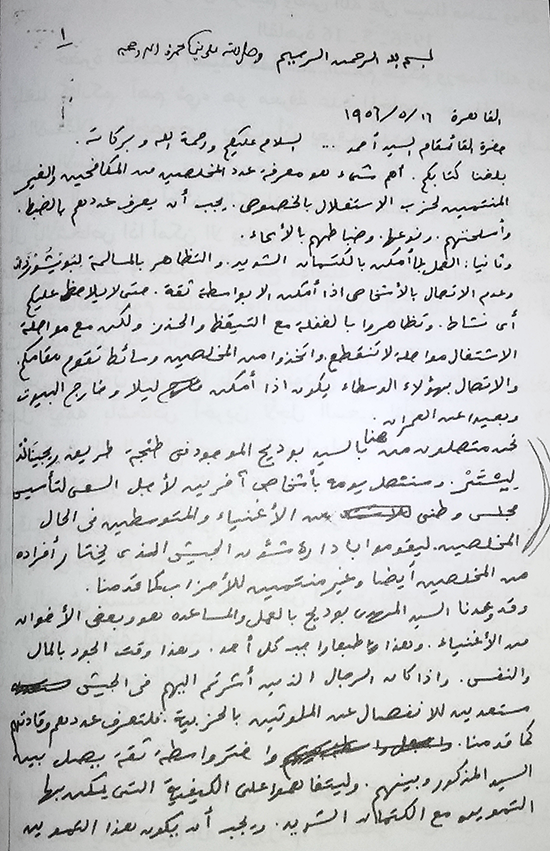 ١
بسم الله الرحمن الرحيم وصلى الله على سيدنا محمد وآله وصحبه
القاهرة ١٦/٥/١٩٥٦
حضرة القائمقام السيد أحمد ... السلام عليكم ورحمة الله وبركاته.
بلغنا كتابكم. أهم شيء هو معرفة عدد المخلصين من المكافحين والغير
المنتمين لحزب الاستقلال بالخصوص. يجب أن يعرف عددهم بالضبط.
وأسلحتهم. ونوعها. وضباطهم بالأسماء.
وثانيا: العمل ما أمكن بالكتمان الشديد. والتظاهر بالمسالمة
وعدم الاتصال بالأشخاص اذا أمكن الا بواسطة ثقة. حتى لا يلاحظ عليكم
أى نشاط. وتظاهروا بالغفلة مع التيقظ والحذر ولكن مع مواصلة
الاشتغال مواصلة لا تنقطع. واتخذوا من المخلصين وسائط تقوم مقامكم.
والاتصال بهؤلاء الوسطاء يكون اذا أمكن ليلا وخارج البيوت
وبعيدا عن العمران.
نحن متصلون من هنا بالسيد بوديح الموجود فى طنجة طريق
لِيشْتَرْ. وسنتصل يومه بأشخاص آخرين لأجل السعى لتأسيس
مجلس وطنى من الأغنياء والمتوسطين فى الحال
المخلصين. ليقوموا بادارة شئون الجيش الذى يختار أفراده
من المخلصين أيضا وغير منتمين للأحزاب كما قدمنا.
وقد وعدنا السيد المهدى بوديح بالعمل والمساعده هو وبعض الأخوان
من الأغنياء. وهذا طبعا واجب كل أحد. وهذا وقت الجود بالمال
والنفس. واذا كان الرجال الذين أشرتم اليهم فى الجيش
مستعدين للانفصال عن الملوثين بالحزبية. فلتعرف عددهم وقادتهم
كما قدمنا. واختر واسطة ثقة يصل بين
السيد المذكور وبينهم. وليتفاهموا على الكيفية التى يمكن بها
التموين مع الكتمان الشديد. ويجب أن يكون هذا التموين